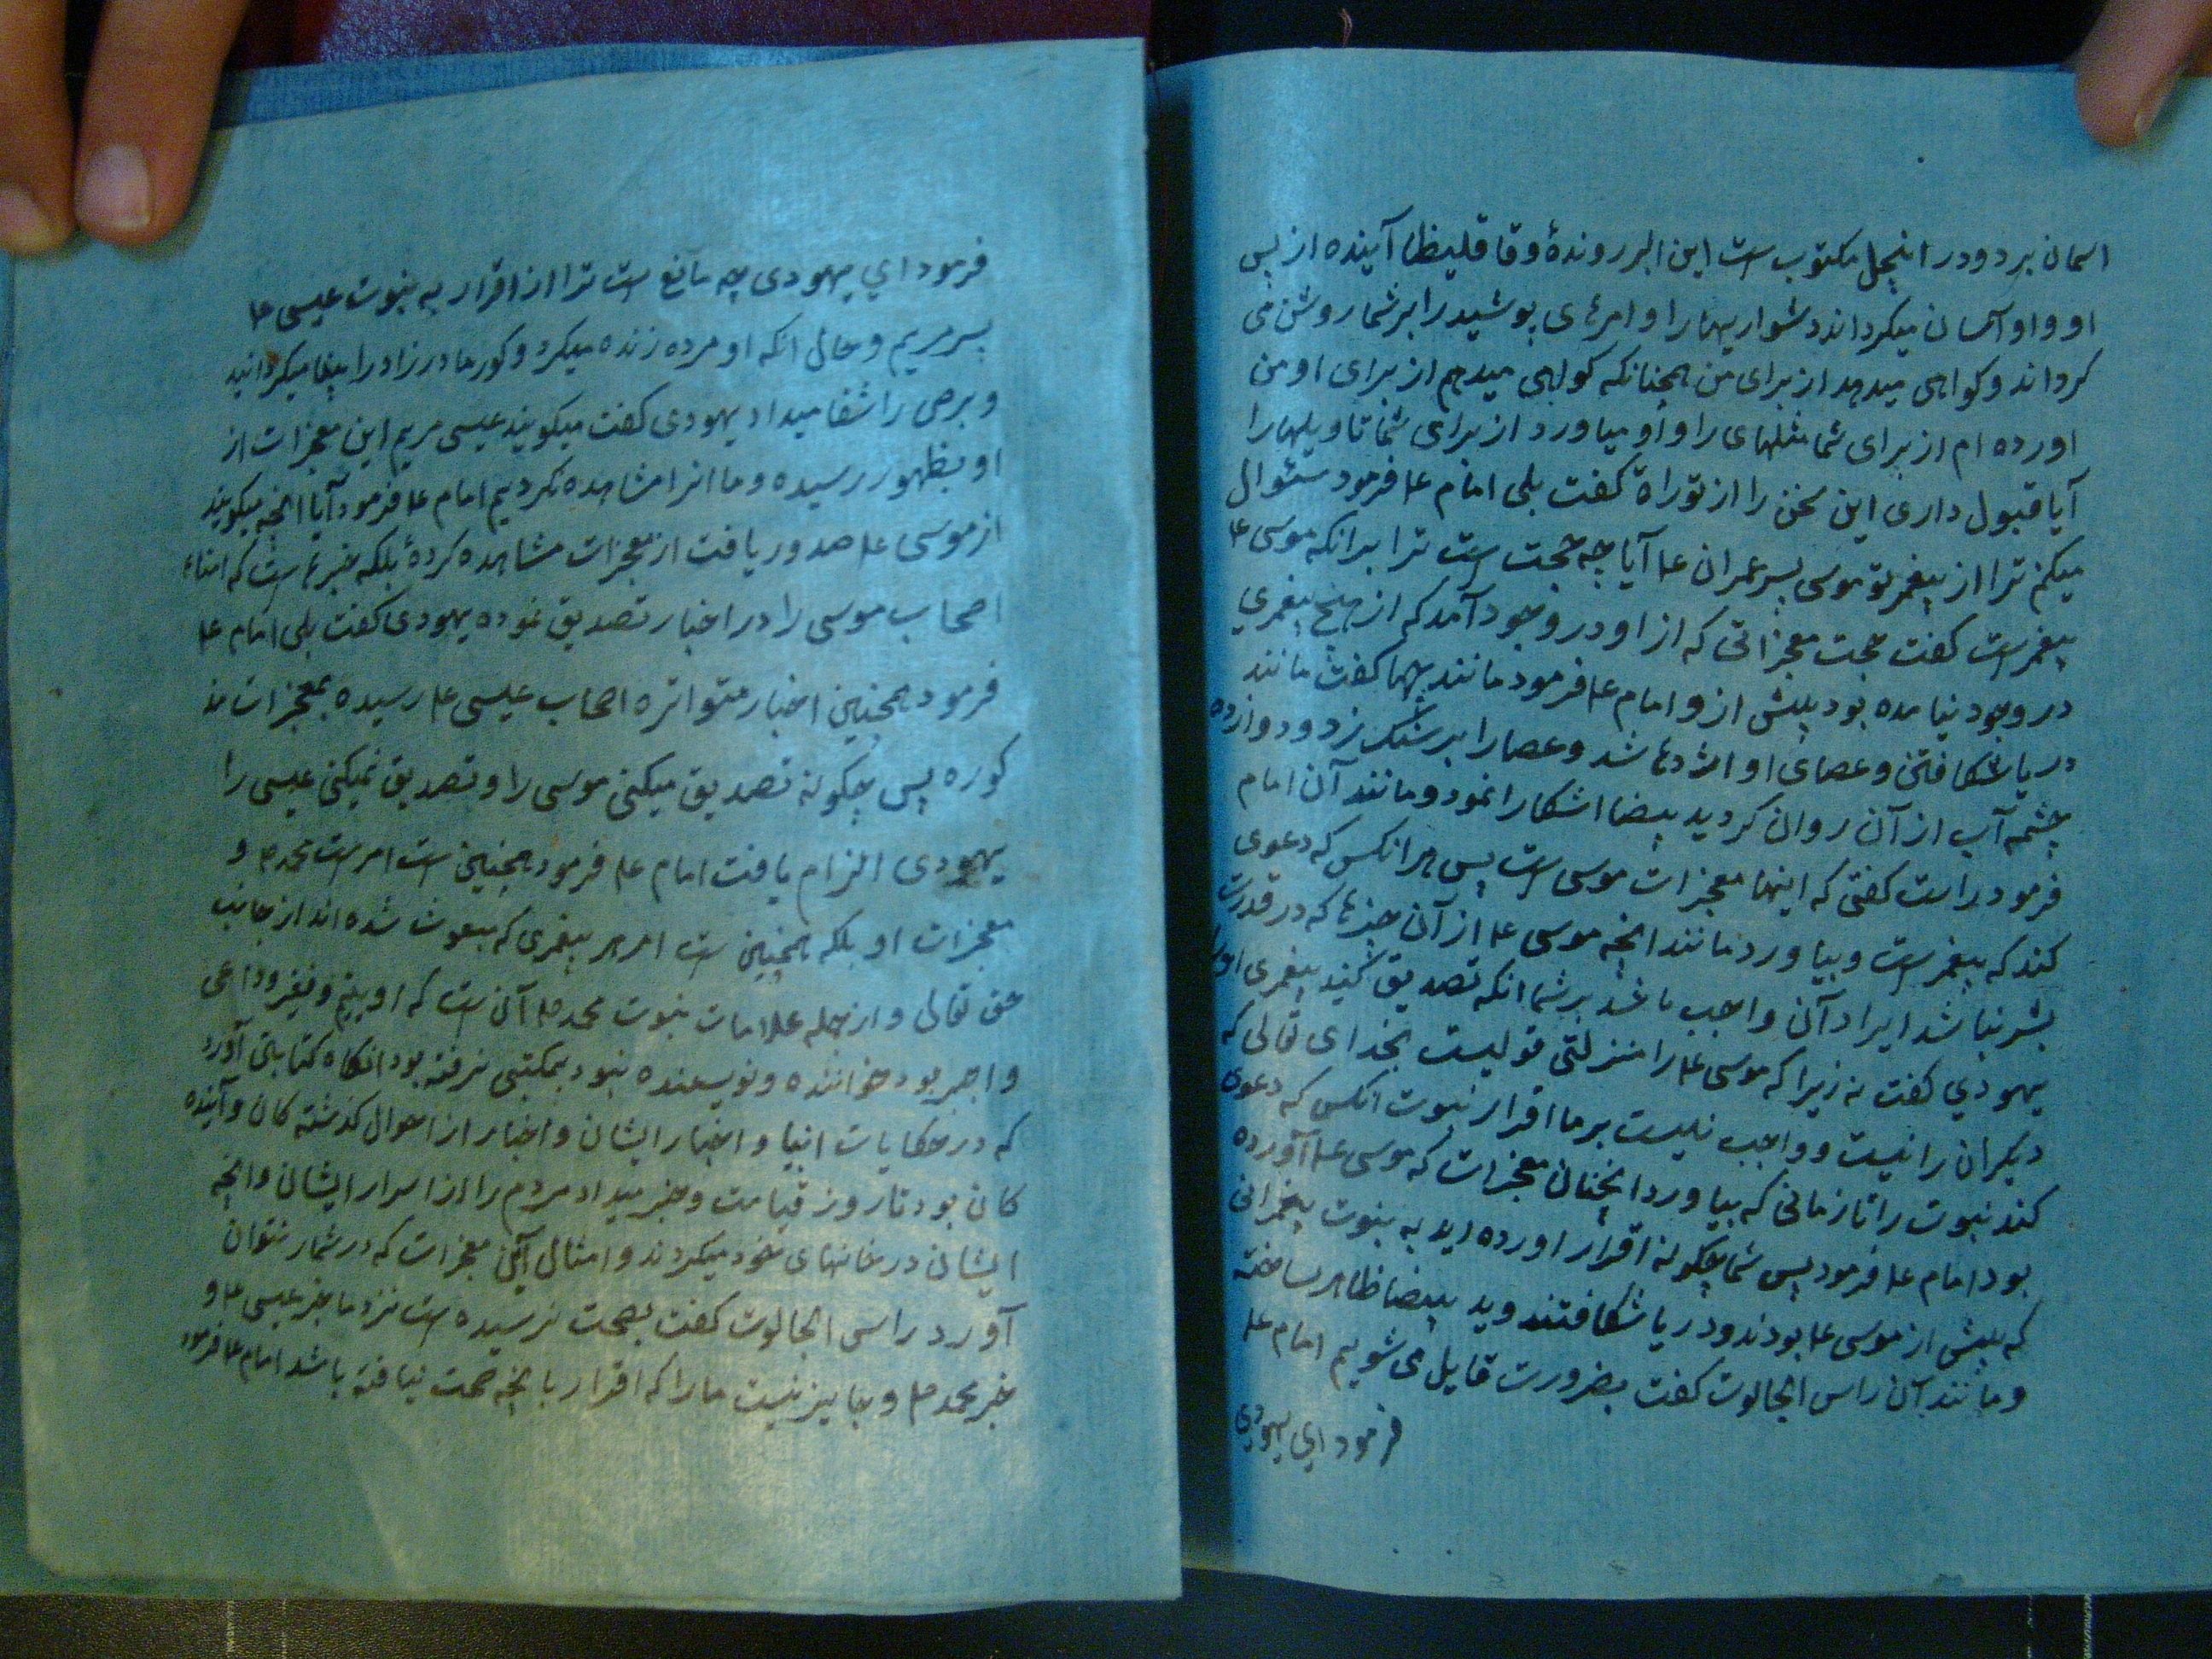 اسمان برد و در انجیل مکتوب است ابن البر رونده و فاقلیظا آینده از پس
او و او آسان میکرداند دشواریها را و امرهای پوشید را بر شما روشن می
کرداند و کواهی میدهد از برای من همچنانکه کواهی میدهم از برای او من
اورده ام از برای شما مثلهای را و او میاورد از برای شما تاویلها را
آیا قبول داری این سخن را از توراة کفت بلی امام ع فرمود سئوال
میکنم ترا از پیغمبر تو موسی پسر عمران ع آیا چه حجت است ترا برانکه موسی ع
پیغمبر است کفت حجت معجزاتی که از او در وجود آمد که از هیچ پیغمبری
در وجود نیامده بود پیش از و امام ع فرمود مانند چها کفت مانند
دریا شکافتن و عصای او اژدها شد و عصا را بر سنک زد و دوازده
چشمه آب از آن روان کردید بیضا اشکارا نمود و مانند آن امام
فرمود راست کفتی که اینها معجزات موسی است پس هر انکس که دعوی
کند که پیغمبر است و بیاورد مانند انچه موسی ع از آن چیزها که در قدرت
بشر نباشد ایراد آن واجب باشد بر شما انکه تصدیق کنید پیغمبری اورا
یهودی کفت نه زیرا که موسی ع را منزلتی قولیست بخدای تعالی که
دیکران را نیست و واجب نیست بر ما اقرار نبوت انکس که دعوی
کند نبوت را تا زمانی که بیاورد انچنان معجزات که موسی ع آورده
بود امام ع فرمود پس شما چکونه اقرار اورده اید به نبوت پیغمرانی
که پیش از موسی ع بودند و دریا شکافتند وید بیضا ظاهر ساخته
و مانند آن راس الجالوت کفت بضرورت قایل می شویم امام ع
فرمود ای یهودی
فرمود ای یهودی چه مانع است ترا از اقرار به نبوت عیسی ع
پسر مریم و حال انکه او مرده زنده میکرد و کور مادرزاد را بینا میکردانید
و برص را شفا میداد یهودی کفت میکویند عیسی مریم این معجزات از
او بظهور رسیده و ما انرا مشاهده نکردیم امام ع فرمود آیا انچه میکویند
از موسی ع صدور یافت از معجزات مشاهده کردهٔ بلکه خبرها است که
اصحاب موسی را در اخبار تصدیق نموده یهودی کفت بلی امام ع
فرمود همچنین اخبار متواتره اصحاب عیسی ع رسیده بمعجزات مذ
کوره پس چکونه تصدیق میکنی موسی را و تصدیق نمیکنی عیسی را
یهودی الزام یافت امام ع فرمود همچنین است امر است محمد ص و
معجزات او بلکه همچنین است امر هر پیغمری که مبعوث شده اند از جانب
حق تعالی و از جمله علامات نبوت محمد ص آن است که او یتیم و فقیر و داعی
و اجیر بود خواننده و نویسنده نبود بمکتبی نرفته بود انکاه کتابی آورد
که در حکایات انبیا و اخبار ایشان و اخبار از احوال کذشته کان و آینده
کان بود تا روز قیامت و خبر میداد مردم را از اسرار ایشان و انچه
ایشان در خانهای خود میکردند و امثال آن معجزات که در شمار نتوان
آورد راس الجالوت کفت بصحت نرسیده است نزد ما خبر عیسی ع و
خبر محمد ص و جایز نیست ما را که اقرار بانچه صحت نیافته باشد امام ع فرمود